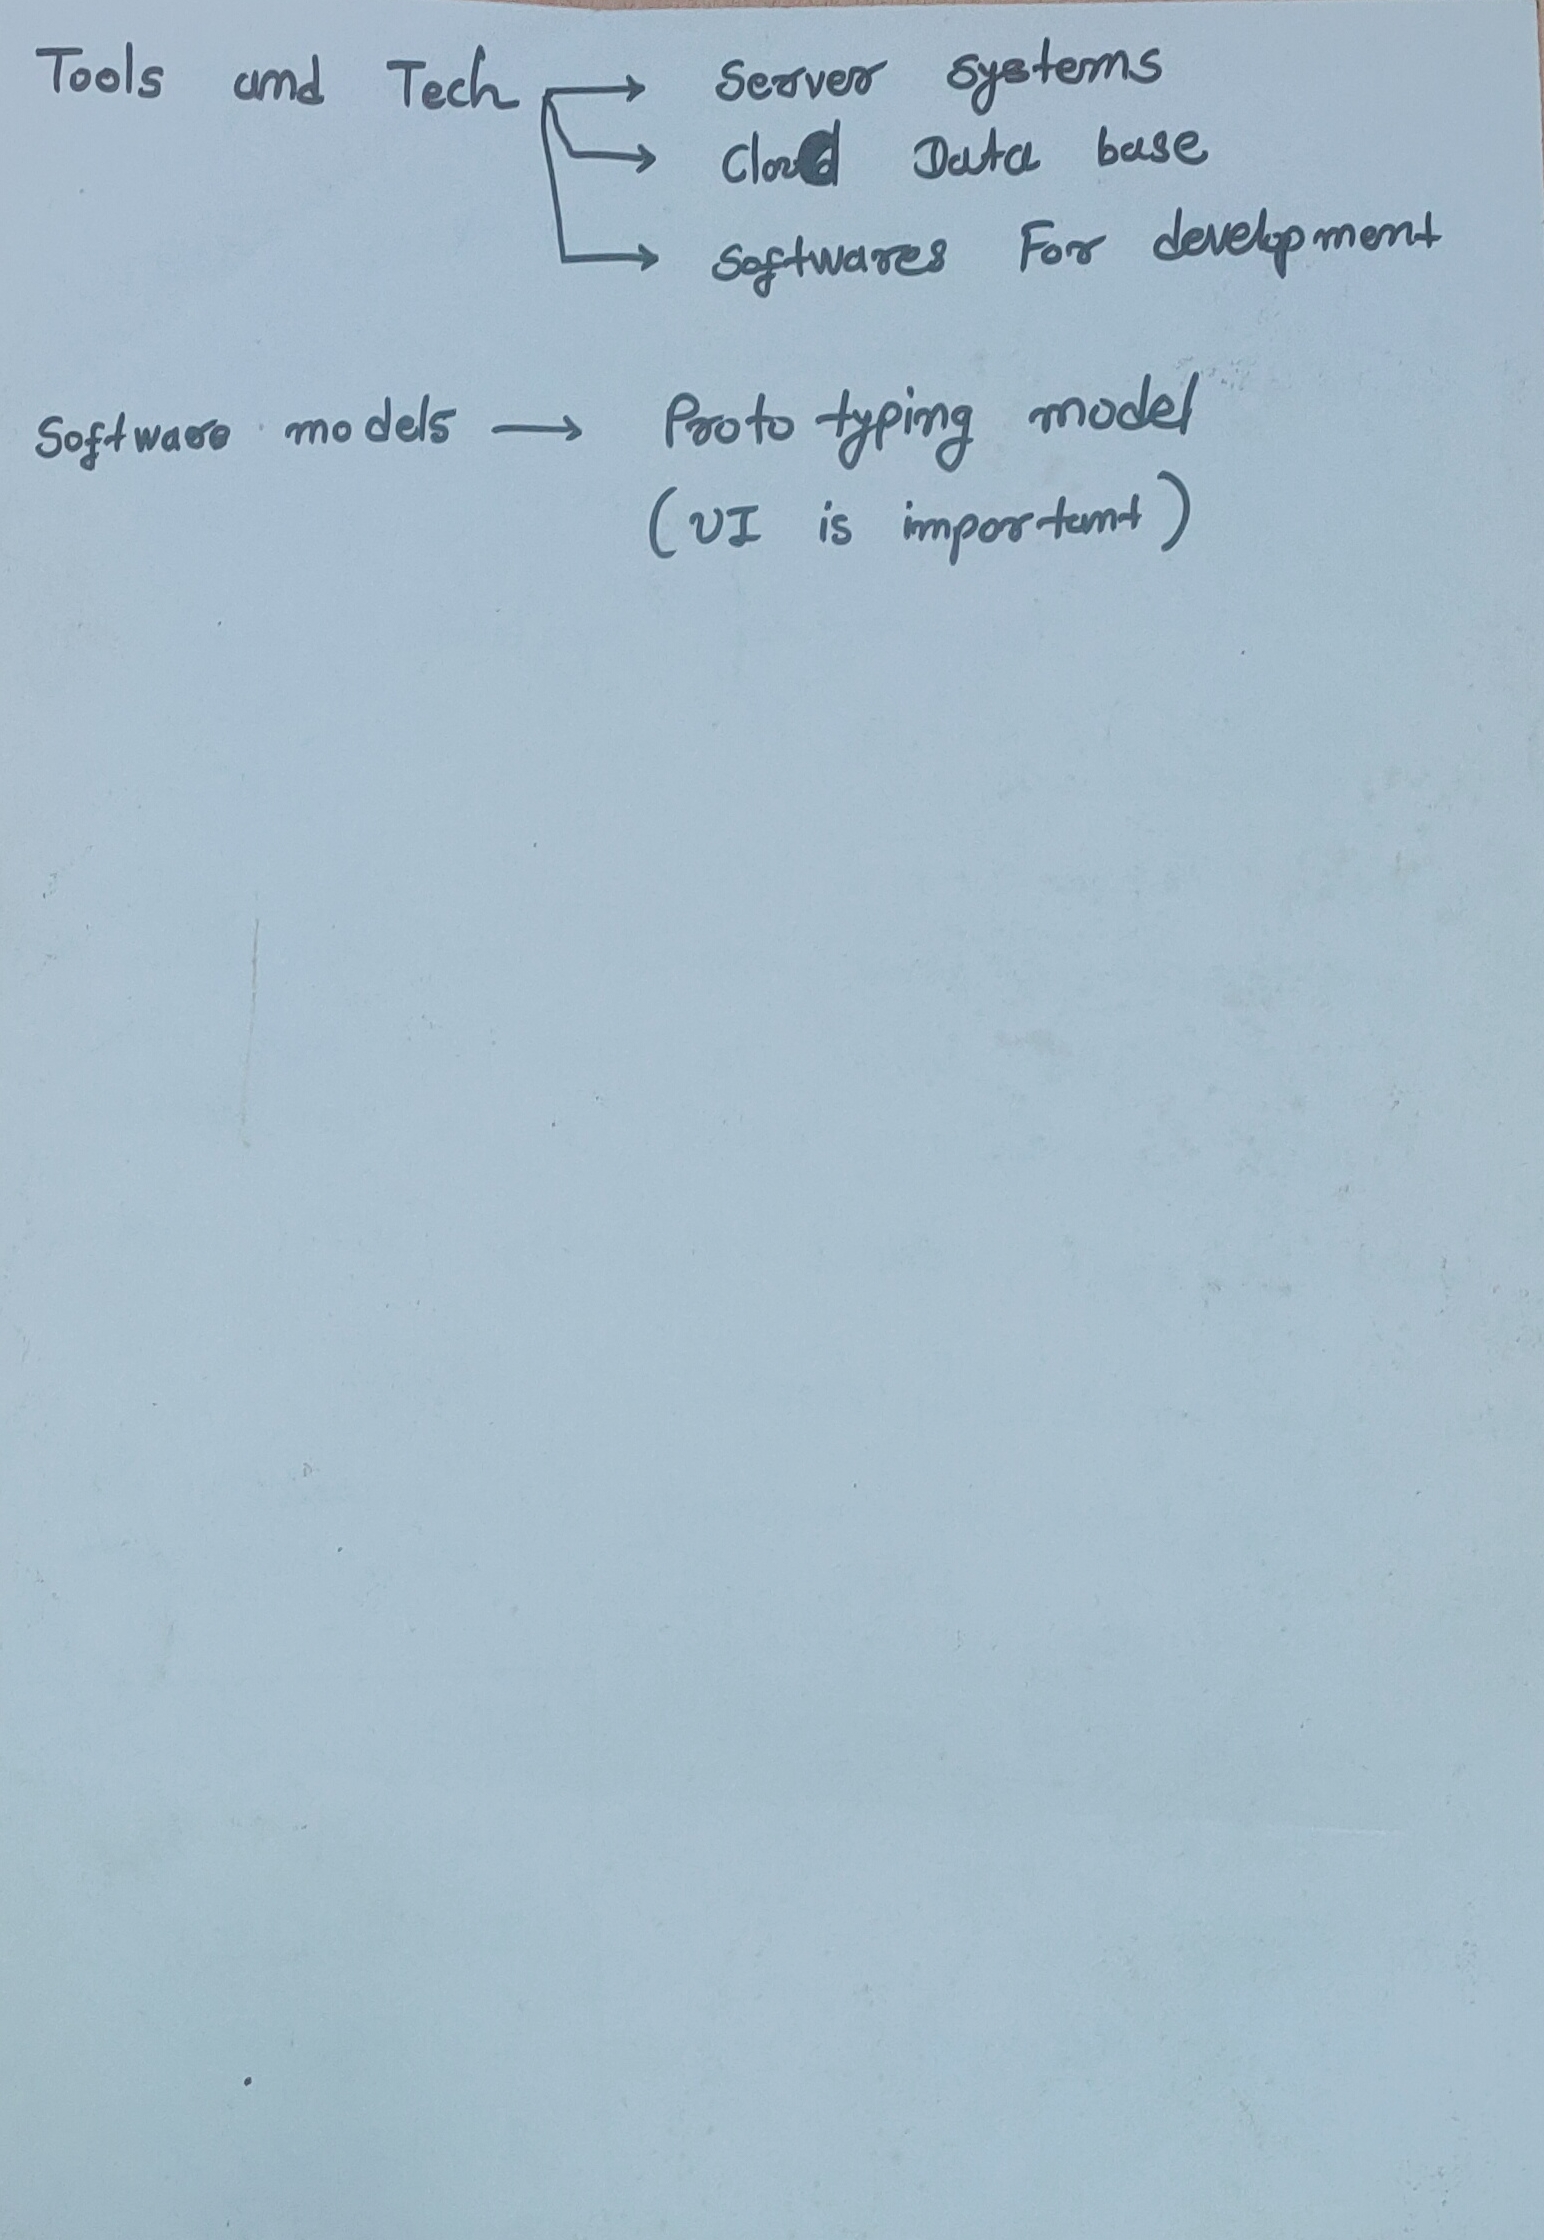 Tools and Tech → Server systems
→ Cloud Data base
→ Softwares For development
Software models → Proto typing model
(UI is important)